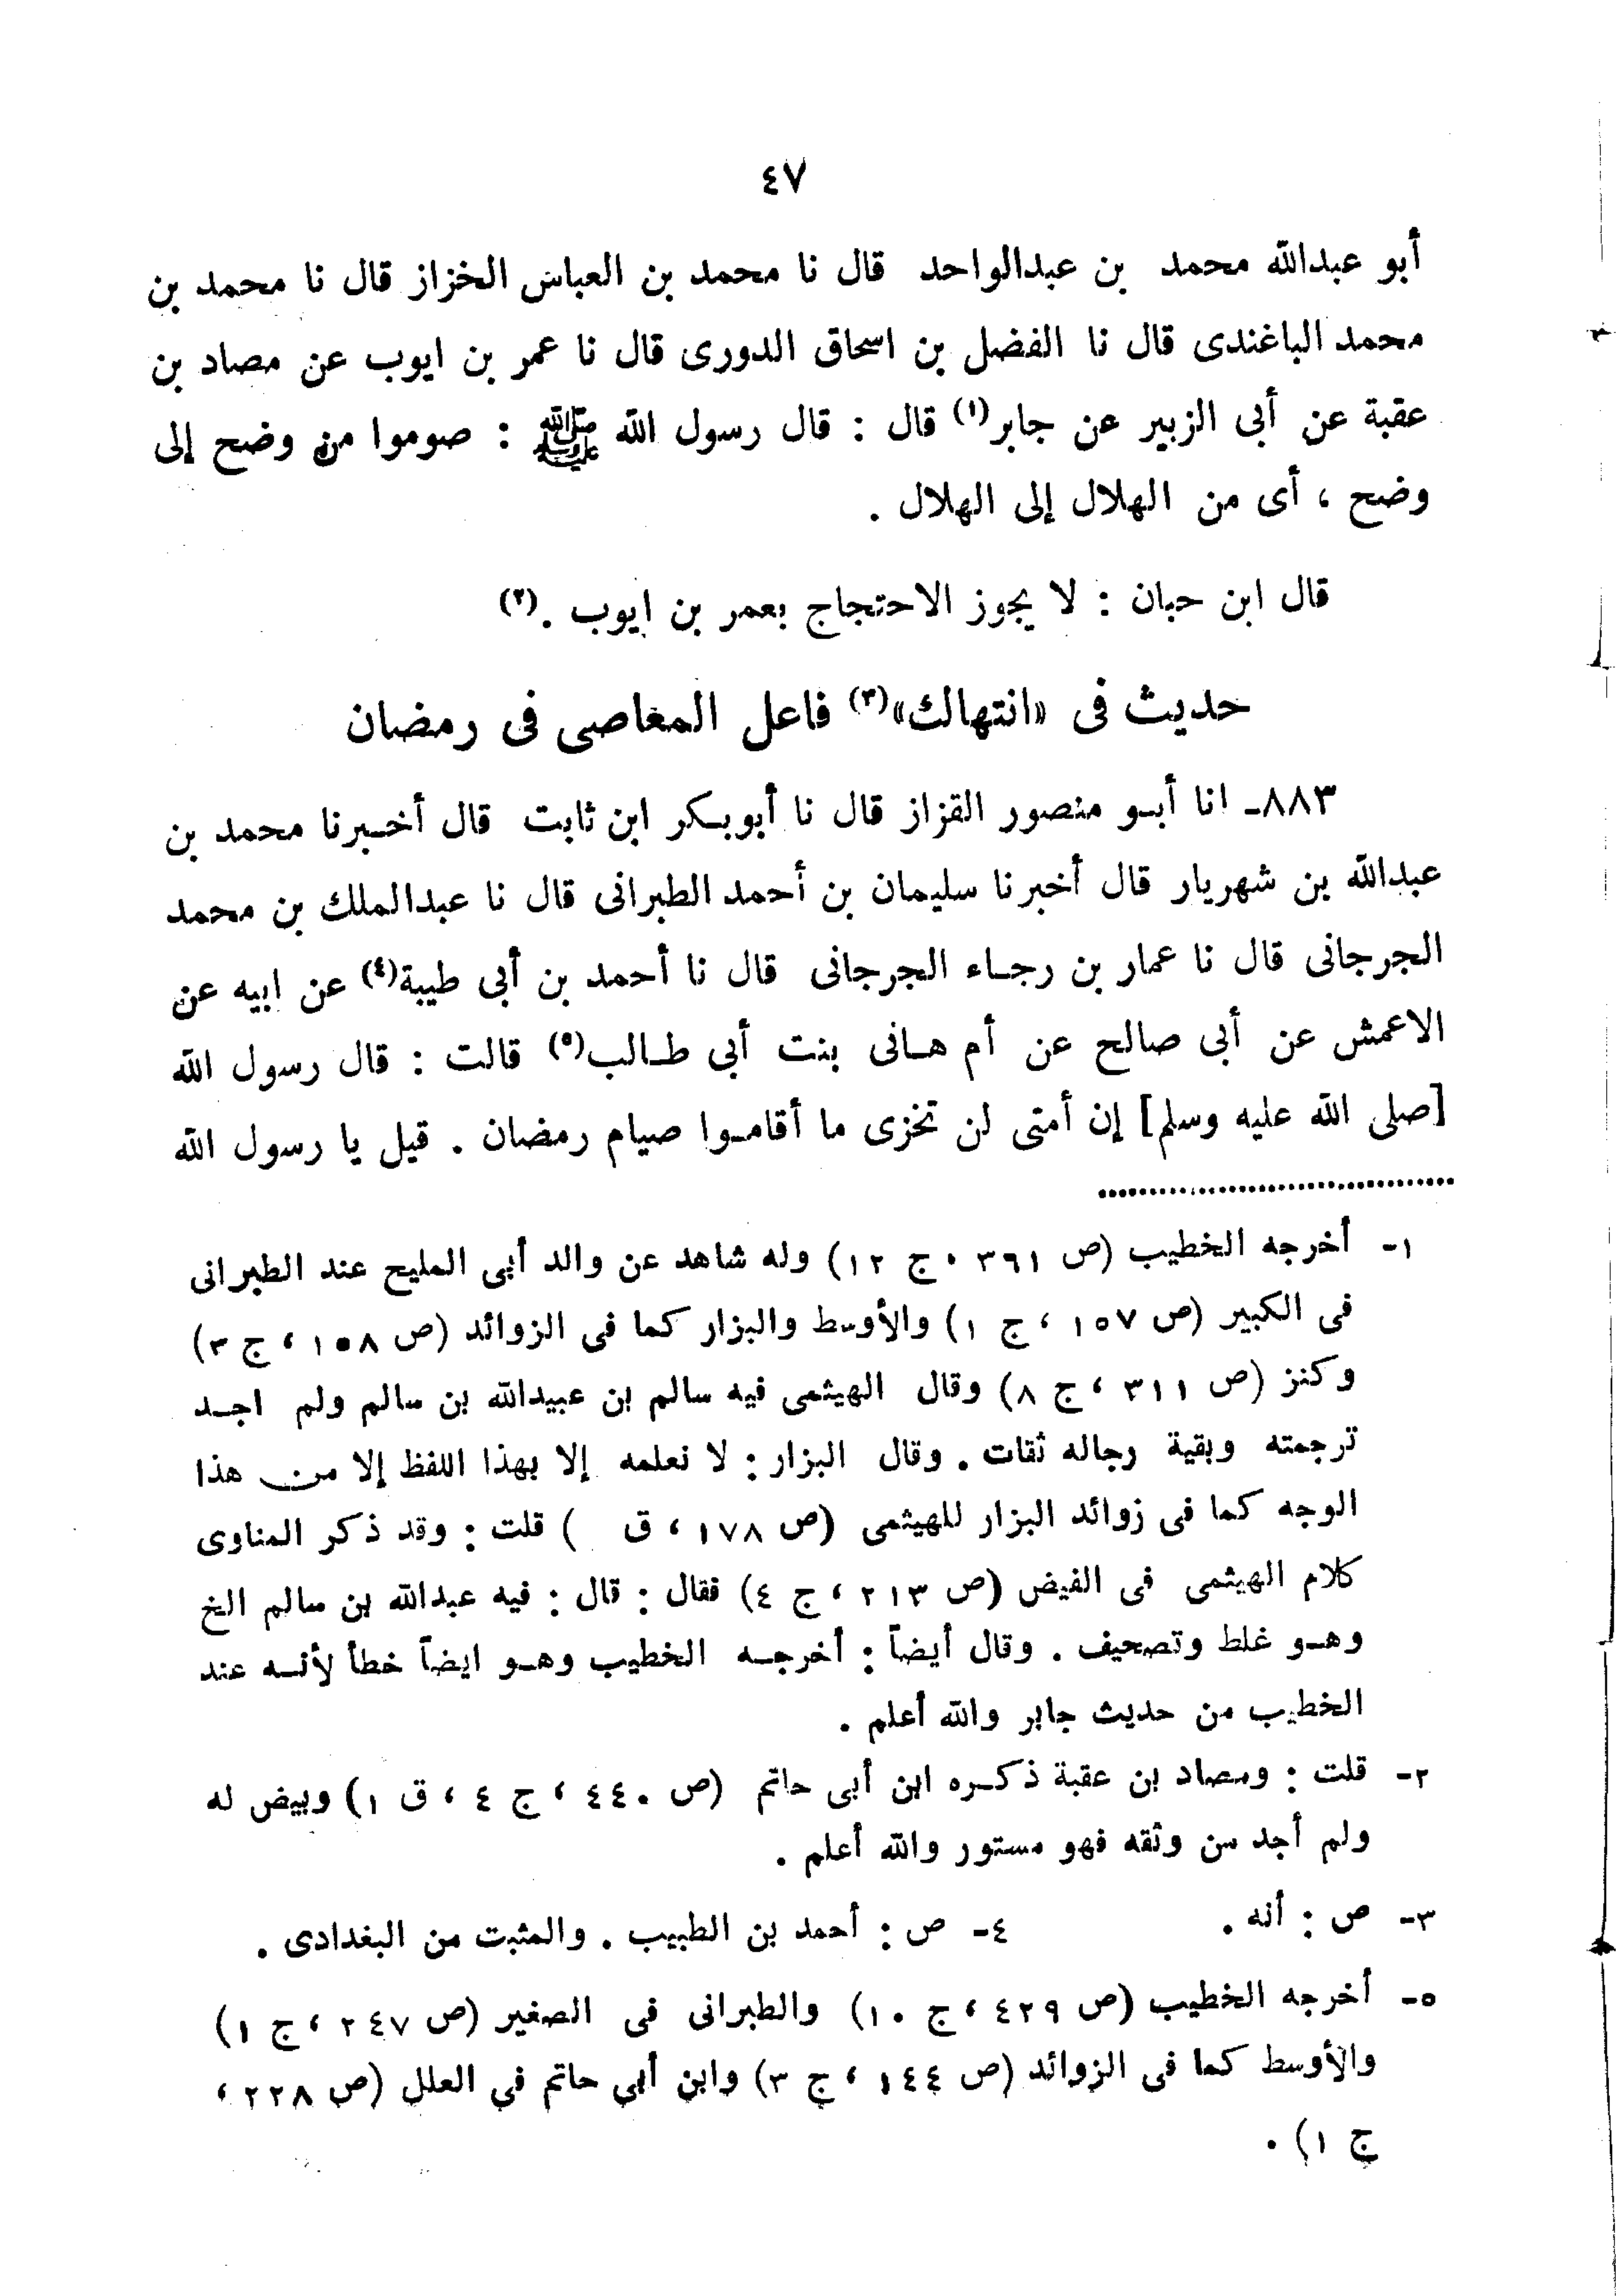 ٤٧
أبو عبدالله محمد بن عبدالواحد قال نا محمد بن العباس الخزاز قال نا محمد بن
محمد الباغندى قال نا الفضل بن اسحاق الدورى قال نا عمر بن ايوب عن مصاد بن
عقبة عن أبى الزبير عن جابر(١) قال : قال رسول الله ﷺ : صوموا من وضح إلى
وضح ، أى من الهلال إلى الهلال .
قال ابن حبان : لا يجوز الاحتجاج بعمر بن ايوب .(٢)
حديث فى «انتهالك»(٣) فاعل المغاصى فى رمضان
٨٨٣ـ انا أبـو منصور القزاز قال نا أبوبـكر ابن ثابت قال أخـبرنا محمد بن
عبدالله بن شهريار قال أخبرنا سليمان بن أحمد الطبرانى قال نا عبدالملك بن محمد
الجرجانى قال نا عمار بن رجـاء الجرجانى قال نا أحمد بن أبى طيبة(٤) عن ابيه عن
الاعمش عن أبى صالح عن أم هـانى بنت أبى طـالب(٥) قالت : قال رسول الله
[صلى الله عليه وسلم] إن أمتى لن تخزى ما أقامـوا صيام رمضان . قيل يا رسول الله
١ـ أخرجه الخطيب (ص ٣٦١ ، ج ١٢) وله شاهد عن والد أبى المليح عند الطبرانى
فى الكبير (ص ١٥٧ ، ج ١) والأوسط والبزار كما فى الزوائد (ص ١٥٨ ، ج ٣)
وكنز (ص ٣١١ ، ج ٨) وقال الهيثمى فيه سالم بن عبيدالله بن سالم ولم اجـد
ترجمته وبقية رجاله ثقات . وقال البزار : لا نعلمه إلا بهذا اللفظ إلا من هذا
الوجه كما فى زوائد البزار للهيثمى (ص ١٧٨ ، ق ) قلت : وقد ذكر المناوى
كلام الهيثمى فى الفيض (ص ٢١٣ ، ج ٤) فقال : قال : فيه عبدالله بن سالم الخ
وهـو غلط وتصحيف . وقال أيضاً : أخرجـه الخطيب وهـو ايضاً خطأ لأنـه عند
الخطيب من حديث جابر والله أعلم .
٢ـ قلت : ومصاد بن عقبة ذكـره ابن أبى حاتم (ص ٤٤٠ ، ج ٤ ، ق ١) وبيض له
ولم أجد من وثقه فهو مستور والله أعلم .
٣ـ ص : أنه . ٤ـ ص : أحمد بن الطبيب . والمثبت من البغدادى .
٥ـ أخرجه الخطيب (ص ٤٢٩ ، ج ١٠) والطبرانى فى الصغير (ص ٢٤٧ ، ج ١)
والأوسط كما فى الزوائد (ص ١٤٤ ، ج ٣) وابن أبى حاتم في العلل (ص ٢٢٨ ،
ج ١) .